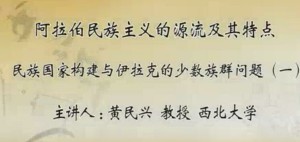 阿拉伯民族主义的源流及其特点
民族国家构建与伊拉克的少数族群问题（一）
主讲人：黄民兴 教授 西北大学